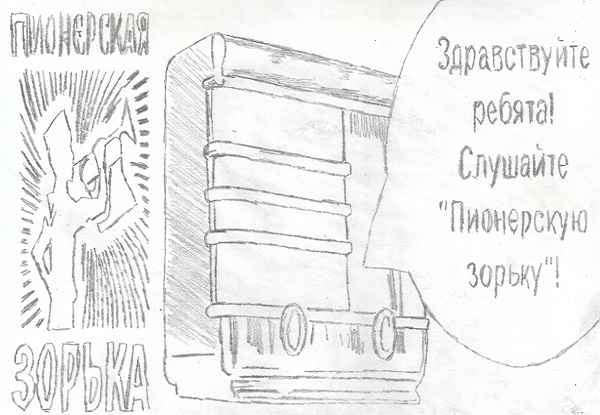 ПИОНЕРСКАЯ
ЗОРЬКА
Здравствуйте
ребята!
Слушайте
"Пионерскую
зорьку"!